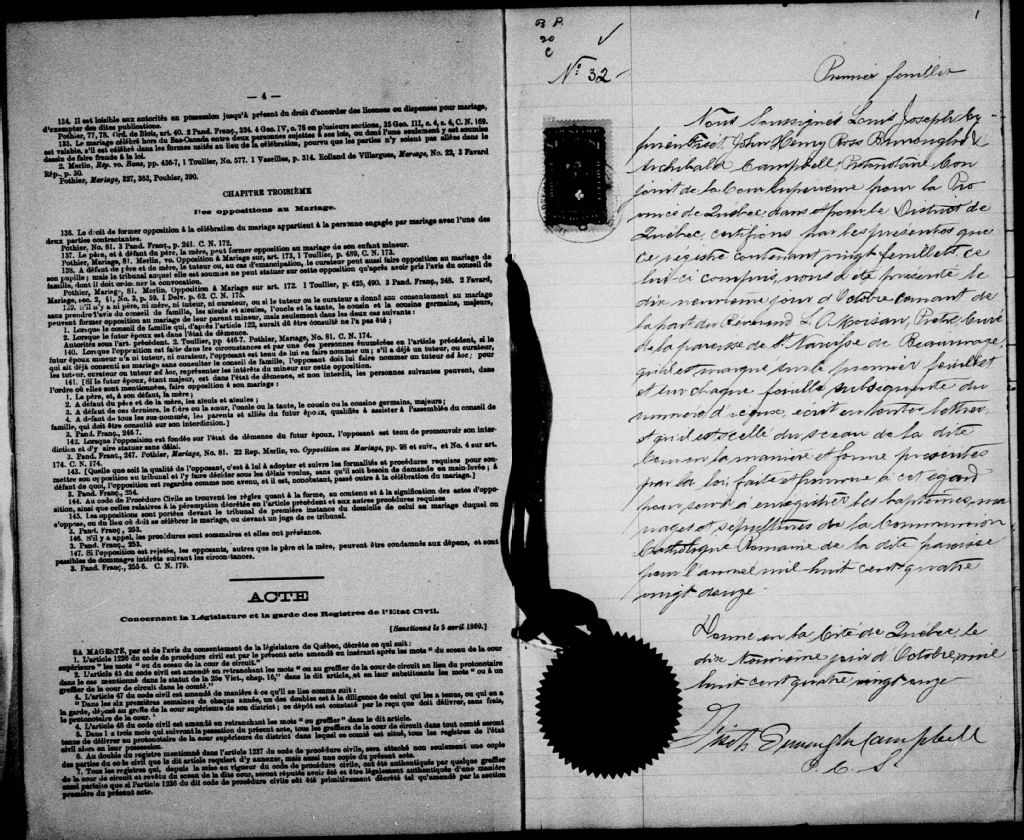 — 4 —
134. Il est loisible aux autorités en possession jusqu'à présent du droit d'accorder des licences ou dispenses pour mariage,
d'exempter des dites publications.
Pothier, 77, 78. Ord. de Blois, art. 40. 2 Pand. Franç., 324. 4 Geo. IV, c. 76 en plusieurs sections, 35 Geo. III, c. 4, s. 4, C. N. 169.
135. Le mariage célébré hors du Bas-Canada entre deux personnes sujettes à ses lois, ou dont l'une seulement y est soumise
est valable, s'il est célébré dans les formes usitées au lieu de la célébration, pourvu que les parties n'y soient pas allées dans le
dessin de faire fraude à la loi.
2. Merlin, Rép. vo. Bans, pp. 436-7, 1 Toullier, No. 577. 1 Vaseilles, p. 314. Rolland de Villargues, Mariage, No. 22, 3 Favard
Rép., p. 50.
Pothier, Mariage, 327, 363, Pouhier, 390.
CHAPITRE TROISIÈME
Des oppositions au Mariage.
136. Le droit de former opposition à la célébration du mariage appartient à la personne engagée par mariage avec l'une des
deux parties contractantes.
Pothier, No. 81. 3 Pand. Franç., p. 241. C. N. 172.
137. Le père, et à défaut du père, la mère, peut former opposition au mariage de son enfant mineur.
Pothier, Mariage, 81. Merlin, vo. Opposition à Mariage, sur art. 173, 1 Toullier, p. 489, C. N. 173.
138. A défaut de père et de mère, le tuteur ou, au cas d'émancipation, le curateur peut aussi faire opposition au mariage de
son pupille; mais le tribunal auquel elle est soumise ne peut statuer sur cette opposition qu'après avoir pris l'avis du conseil de
famille, dont il doit ordonner la convocation.
Pothier, Mariage, 81. Merlin, Opposition à Mariage sur art. 172. 1 Toullier, p. 425, 490. 3 Pand. Franç., 248. 2 Favard,
Mariage, sec. 2, 41, No. 3, p. 59. 1 Delv. p. 62. C. N. 175.
139. S'il n'y a ni père, ni mère, ni tuteur, ni curateur, ou si le tuteur ou le curateur a donné son consentement au mariage
sans prendre l'avis du conseil de famille, les aïeuls et aïeules, l'oncle et la tante, le cousin et la cousine germains, majeurs,
peuvent former opposition au mariage de leur parent mineur, mais seulement dans les deux cas suivants:
1. Lorsque le conseil de famille qui, d'après l'article 122, aurait dû être consulté ne l'a pas été;
2. Lorsque le futur époux est dans l'état de démence.
Autorités sous l'art. précédent. 2. Toullier, pp 446-7. Pothier, Mariage, No. 81. C. N. 174.
140. Lorsque l'opposition est faite dans les circonstances et par une des personnes énumérées en l'article précédent, si le
futur époux mineur n'a ni tuteur, ni curateur, l'opposant est tenu de lui en faire nommer un; s'il a déjà un tuteur, ou curateur,
qui ait déjà consenti au mariage sans consulter le conseil de famille, l'opposant doit lui faire nommer un tuteur ad hoc; pour
les tuteur, curateur ou tuteur ad hoc, représenter les intérêts du mineur sur cette opposition.
141. [Si le futur époux, étant majeur, est dans l'état de démence, et non interdit, les personnes suivantes peuvent, dans
l'ordre où elles sont mentionnées, faire opposition à son mariage:
1. Le père, et, à son défaut, la mère;
2. A défaut du père et de la mère, les aïeuls et aïeules;
3. A défaut de ces derniers, le frère ou la sœur, l'oncle ou la tante, le cousin ou la cousine germains, majeurs;
4. A défaut de tous les sus-nommés, les parents et alliés du futur époux, qualifiés à assister à l'assemblée du conseil de
famille, qui doit être consulté sur son interdiction.]
3. Pand. Franç., 246-7.
142. Lorsque l'opposition est fondée sur l'état de démence du futur époux, l'opposant est tenu de promouvoir son inter-
diction et d'y faire statuer sans délai.
3. Pand. Franç., 247. Pothier, Mariage, No. 81. 22 Rep. Merlin, vo. Opposition au Mariage, pp. 98 et suiv., et No. 4 sur art.
174. C. N. 174.
143. [Quelle que soit la qualité de l'opposant, c'est à lui à adopter et suivre les formalités et procédures requises pour sou-
mettre son opposition au tribunal et l'y faire décider sous les délais voulus, sans qu'il soit besoin de demande en main-levée; à
défaut de quoi, l'opposition est regardée comme non avenu, et il est, nonobstant, passé outre à la célébration du mariage.]
3. Pand. Franç., 254.
144. Au code de Procédure Civile se trouvent les règles quant à la forme, au contenu et à la signification des actes d'oppo-
sition, ainsi que celles relatives à la péremption décrétée en l'article précédent et aux autres procédures requises
145. Les oppositions sont portées devant le tribunal de première instance du domicile de celui au mariage duquel on
s'oppose, ou du lieu où doit se célébrer le mariage, ou devant un juge de ce tribunal.
3. Pand. Franç., 253.
146. S'il y a appel, les procédures sont sommaires et elles ont préséance.
3. Pand. Franç., 253.
147. Si l'opposition est rejetée, les opposants, autre que le père et la mère, peuvent être condamnés aux dépens, et sont
passibles de dommages intérêts suivant les circonstances.
3. Pand. Franç., 255-6. C. N. 179.
ACTE
Concernant la Législature et la garde des Registres de l'Etat Civil.
[Sanctionné le 5 avril 1869.]
SA MAGESTÉ, par et de l'avis du consentement de la législature de Québec, décrète ce qui suit:
1. L'article 1236 du code de procédure civil est par le présent acte amendé en insérant après les mots "du sceau de la cour
supérieure" les mots "ou du sceau de la cour de circuit."
2. L'article 43 du code civil est amendé en retranchant les mots "ou au greffier de la cour de circuit au lieu du protonotaire
dans le cas mentionné dans le statut de la 25e Vict., chap. 16," dans le dit article, et en leur substituant les mots "ou à un
greffier de la cour de circuit dans le comté."
4. L'article 47 du code civil est amendé de manière à ce qu'il se lise comme suit:
"Dans les six premières semaines de chaque année, un des doubles est à la diligence de celui qui les a tenus, ou qui en a
la garde, déposé au greffe de la cour supérieure de son district; ce dépôt est constaté par le reçu que doit délivrer, sans frais,
le protonotaire de la cour."
4. L'article 48 du code civil est amendé en retranchant les mots "ou greffier" dans le dit article.
5. Dans les trois mois qui suivront la passation du présent acte, tous les greffiers de la cour de circuit dans tout comté seront
tenus de délivrer au protonotaire de la cour supérieure du district dans lequel ce comté est situé, tous les registres de l'état
civil alors en leur possession.
6. Au double du registre mentionné dans l'article 1237 du code de procédure civile, sera attaché non seulement une copie
des parties du code civil que le dit article requiert d'y annexer, mais aussi une copie du présent acte.
7. Tous les registres qui, depuis la mise en vigueur du code de procédure civile, ont été authentiqués par quelque greffier
de la cour de circuit et revêtu du sceau de la dite cour, seront réputés avoir été et être légalement authentiqués d'une manière
aussi parfaite que si l'article 1236 du dit code de procédure civile eût été primitivement décrété tel qu'amendé par la section
première du présent acte.
1
B P.
20
C
No 32
Premier feuillet
Nous Soussignés Louis Joseph Cy-
prien Fiset, John Henry Ross Burroughs &
Archibald Campbell, Protonotaire Con-
joint de la Cour Supérieure pour la Pro
vince de Québec, dans et pour le District de
Québec, certifions par les présentes que
ce registre contenant vingt feuillets, ce
lui-ci compris, nous a été présenté le
dix neuvième jour d'Octobre courant de
la part du Révérend L. O. Moisan, Prêtre, Curé
de la paroisse de St. Narcisse de Beaurivage
qu'il est marqué sur le premier feuillet
et sur chaque feuillet subséquent du
numéro d'icelui, écrit en toutes lettres,
et qu'il est scellé du sceau de la dite
Cour en la manière et forme prescrites
par la loi faite et pourvue à cet égard
pour servir à enregistrer les baptêmes, ma
riages et sépultures de la Communion
Catholique Romaine de la dite paroisse
pour l'année mil huit cent quatre
vingt douze.
Donné en la Cité de Québec, le
dix neuvième jour d'Octobre, mil
huit cent quatre vingt onze
Fiset, Burroughs Campbell
P. C. S.